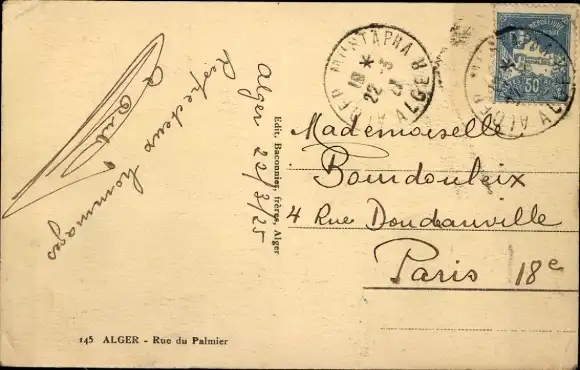 Alger 22/3/25
Respectueux hommages
Edit. Baconnier, frères, Alger
145 ALGER - Rue du Palmier
ALGER MUSTAPHA
ALGER
18 * 22 - 3
50
Mademoiselle
Bourdouleix
4 Rue Doudeauville
Paris 18e